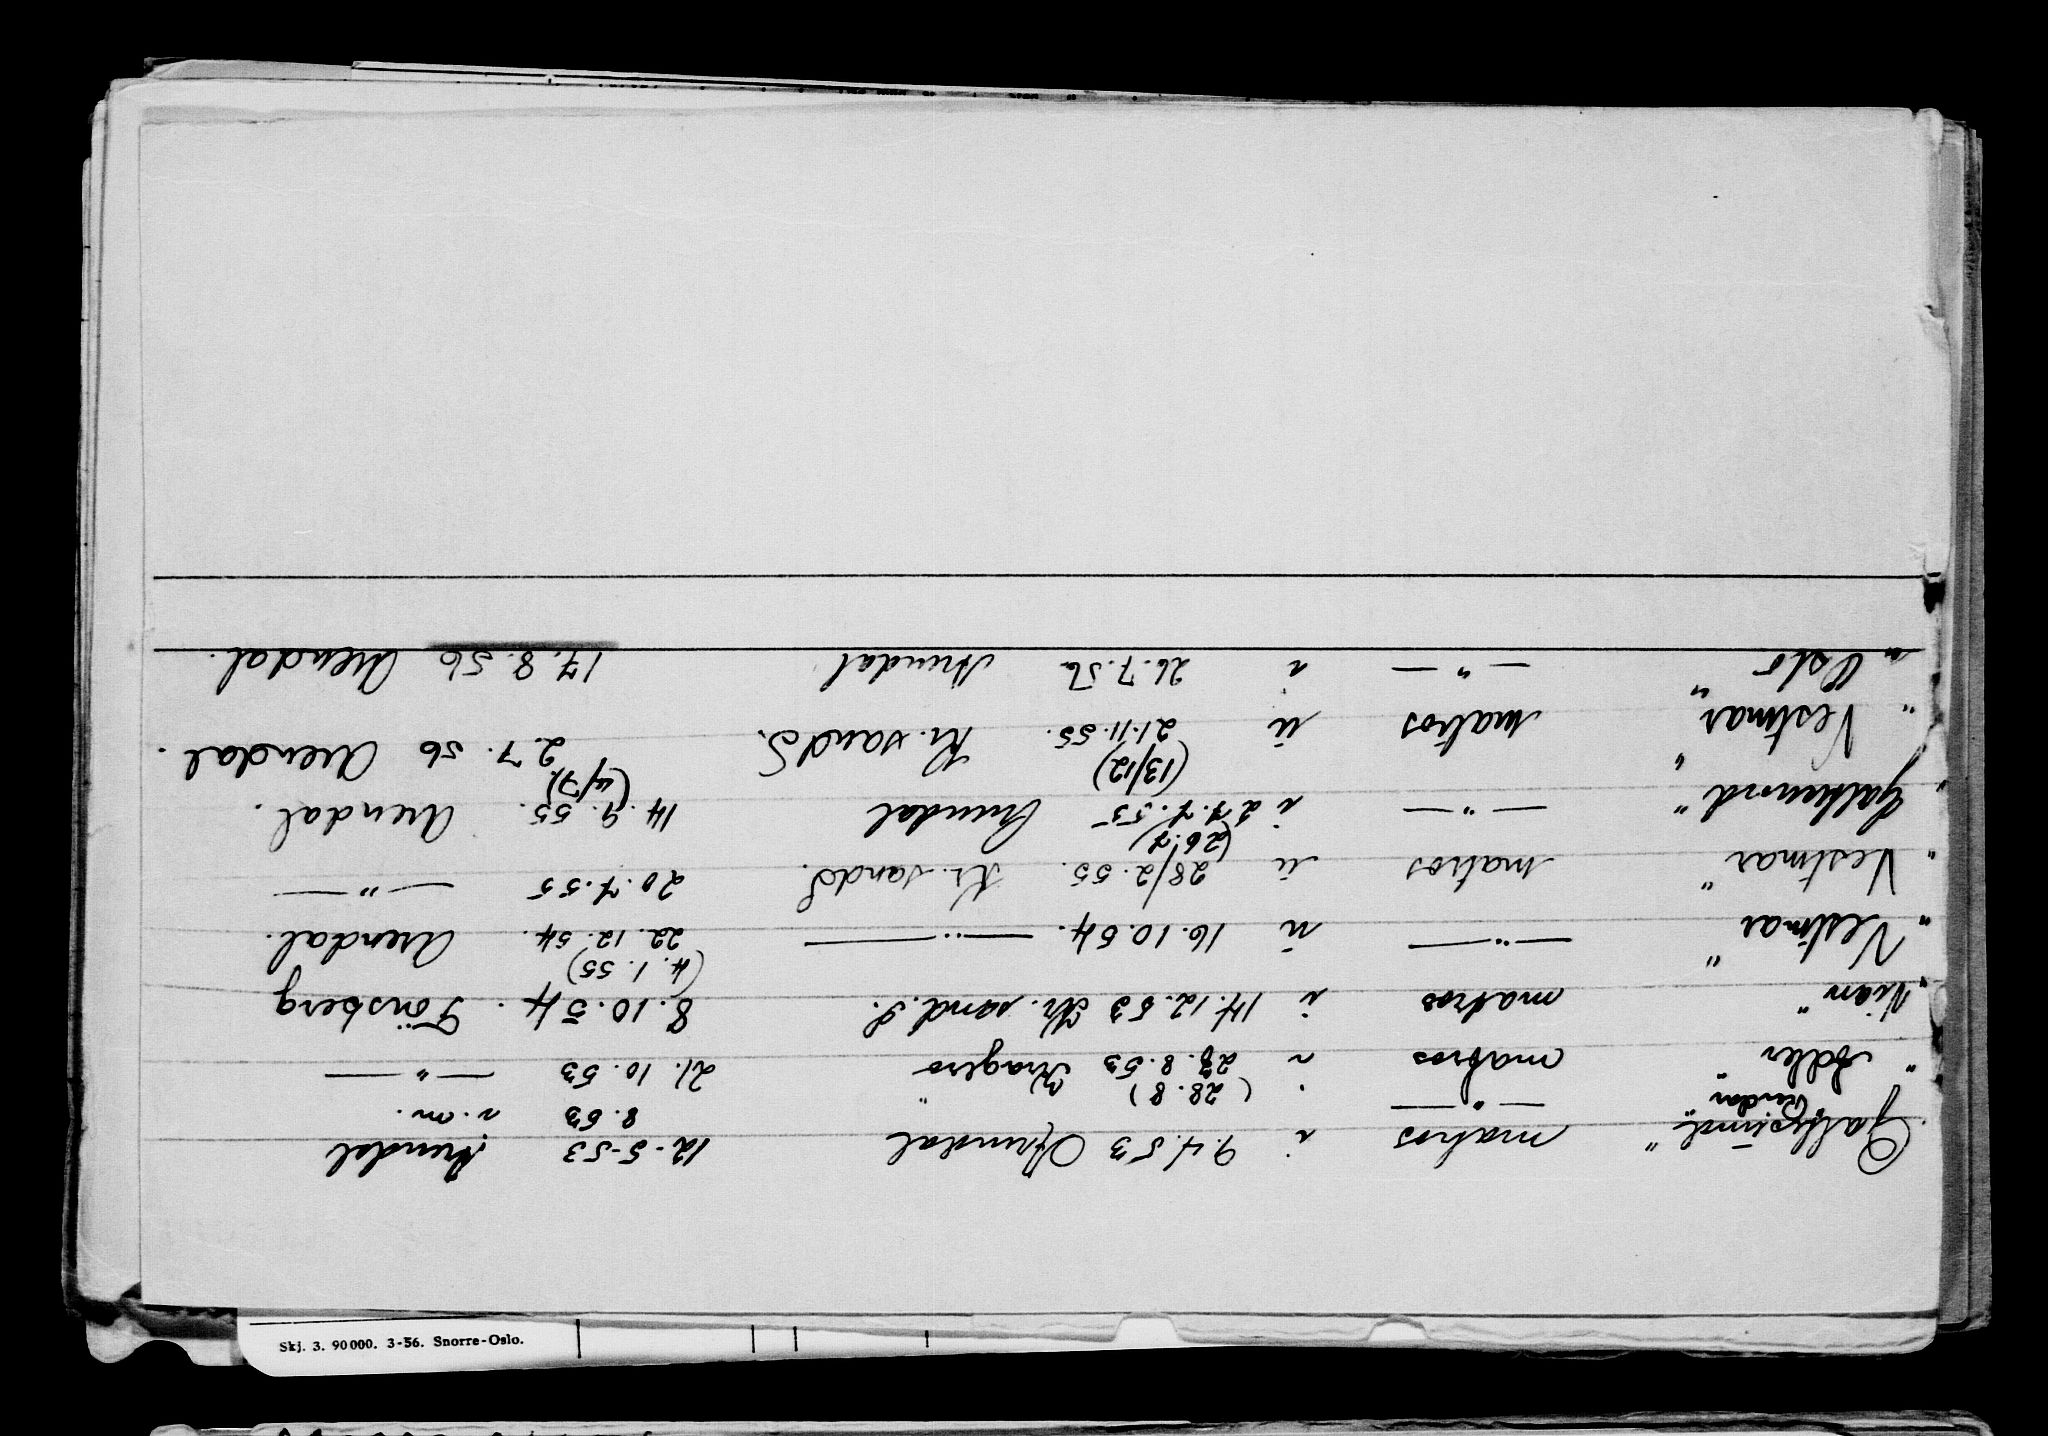 Galtesund" matros i 9.4.53 Arendal 12-5-53 Arendal
—"— 8.53
"Adler" matros (28.8) 28.8.53 Kragerø 21.10.53 —"—
"Vian" matros i 14.12.53 Kr.sand.S. 8.10.54. Tönsberg
"Vestmar" —"— ü 16.10.54. —"— 22.12.54. (4.1.55) Arendal.
"Vestmar" matros ü 28/2.55. Kr.sandS. 20.7.55 —"—
"Galtenord" —"— i 27.7.55 (26.7) Arendal 14.9.55. Arendal.
"Vestmar" matros ü 21.11.55. (13/12) Kr.sandS. 2.7.56 (4/7) Arendal.
"Oslo" —"— i 26.7.56 Arendal 17.8.56 Arendal.
Skj. 3. 90000. 3-56. Snorre-Oslo.